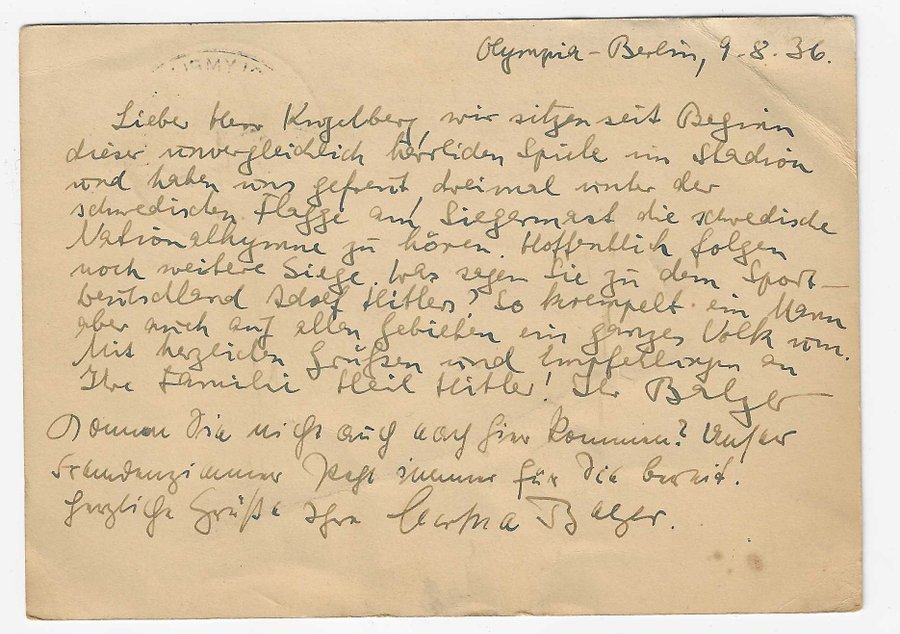 Olympia-Berlin, 9.8.36.
Lieber Herr Kugelberg, wir sitzen seit Beginn
dieser unvergleichlich herrlichen Spiele im Stadion
und haben uns gefreut, dreimal unter der
schwedischen Flagge am Siegermast die schwedische
Nationalhymne zu hören. Hoffentlich folgen
noch weitere Siege. Was sagen Sie zu dem Sport-
deutschland Adolf Hitlers? So krempelt ein Mann
aber auch auf allen Gebieten ein ganzes Volk um.
Mit herzlichen Grüßen und Empfehlungen an
Ihre Familie Heil Hitler! Ihr
Können Sie nicht auch nach hier kommen? Unser
Fremdenzimmer steht immer für Sie bereit.
Herzliche Grüße Ihre